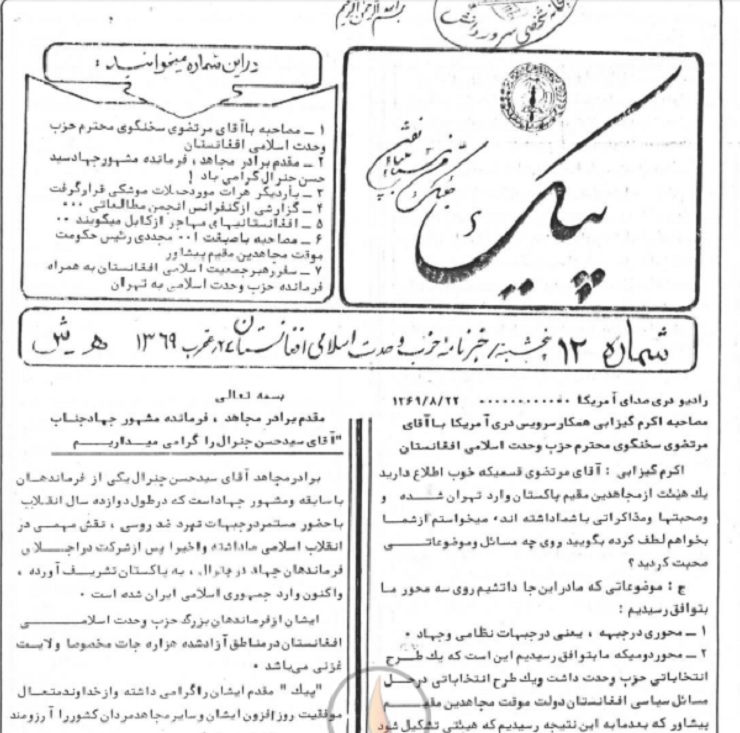 بسم الله الرحمن الرحیم
پیک
در این شماره میخوانید :
۱ ــ مصاحبه با آقای مرتضوی سخنگوی محترم حزب
وحدت اسلامی افغانستان
۲ ــ مقدم برادر مجاهد ، فرمانده مشهور جهاد سید
حسن جنرال گرامی باد !
۳ ــ باردیگر هرات مورد حملات موشکی قرار گرفت
۴ ــ گزارشی از کنفرانس انجمن مطالعاتی ۰۰۰
۵ ــ افغانستانیهای مهاجر از کابل میگویند ۰۰
۶ ــ مصاحبه با صبغت ا۰۰ مجددی رئیس حکومت
موقت مجاهدین مقیم پیشاور
۷ ــ سفر رهبر جمعیت اسلامی افغانستان به همراه
فرمانده حزب وحدت اسلامی به تهران
شماره ۱۲ پنجشنبه خبرنامه حزب وحدت اسلامی افغانستان ۲۴ عقرب ۱۳۶۹ هـ ش
رادیو دری صدای آمریکا ۰۰۰۰۰۰۰۰۰۰۰۰ ۱۳۶۹/۸/۲۲
مصاحبه اکرم گیزابی همکار سرویس دری آمریکا با آقای
مرتضوی سخنگوی محترم حزب وحدت اسلامی افغانستان
اکرم گیزابی : آقای مرتضوی قسمیکه خوب اطلاع دارید
یك هیئت از مجاهدین مقیم پاکستان وارد تهران شده و
وصحبتها ومذاکراتی با شما داشته اند۰ میخواستم از شما
بخواهم لطف کرده بگویید روی چه مسائل وموضوعاتی
صحبت کردید ؟
ج : موضوعاتی که ما در این جا داشتیم روی سه محور ما
بتوافق رسیدیم :
۱ ــ محوری درجبهه ، یعنی درجبهات نظامی وجهاد ۰
۲ ــ محور دومیکه ما بتوافق رسیدیم این است که یك طرح
انتخاباتی حزب وحدت داشت ویك طرح انتخاباتی درحل
مسائل سیاسی افغانستان دولت موقت مجاهدین مقیم
پیشاور که بعدما به این نتیجه رسیدیم که هیئتی تشکیل شود
بسمه تعالی
مقدم برادر مجاهد ، فرمانده مشهور جهاد جناب
"آقای سید حسن جنرال را گرامی میداریم
برادر مجاهد آقای سید حسن جنرال یکی از فرماندهان
با سابقه ومشهور جهاد است که درطول دوازده سال انقلاب
با حضور مستمر درجبهات نبرد ضد روسی ، نقش مهمی در
انقلاب اسلامی ما داشته واخیرا پس از شرکت در اجلاس
فرماندهان جهاد در چترال ، به پاکستان تشریف آورده ،
واکنون وارد جمهوری اسلامی ایران شده است ۰
ایشان از فرماندهان بزرگ حزب وحدت اسلامی
افغانستان در مناطق آزاد شده هزاره جات مخصوصا ولایت
غزنی می باشد ۰
"پیك" مقدم ایشان را گرامی داشته واز خداوند متعال
موفقیت روز افزون ایشان وسایر مجاهد مردان کشور را آرزومند